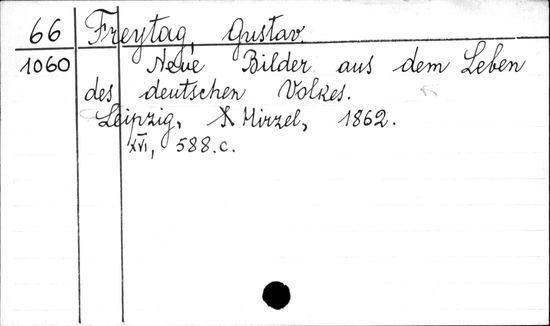 66 Freytag, Gustav.
1060 Neue Bilder aus dem Leben
des deutschen Volkes.
Leipzig, S Hirzel, 1862.
XVI, 588.c.